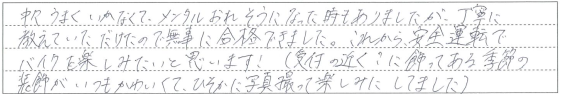 中々うまくいかなくて、メンタルおれそうになった時もありましたが、丁寧に
教えていただけたので無事に合格できました。これから、安全運転で
バイクを楽しみたいと思います！（受付の近くに飾ってある季節の
装飾がいつもかわいくて、ひそかに写真撮って楽しみにしてました）